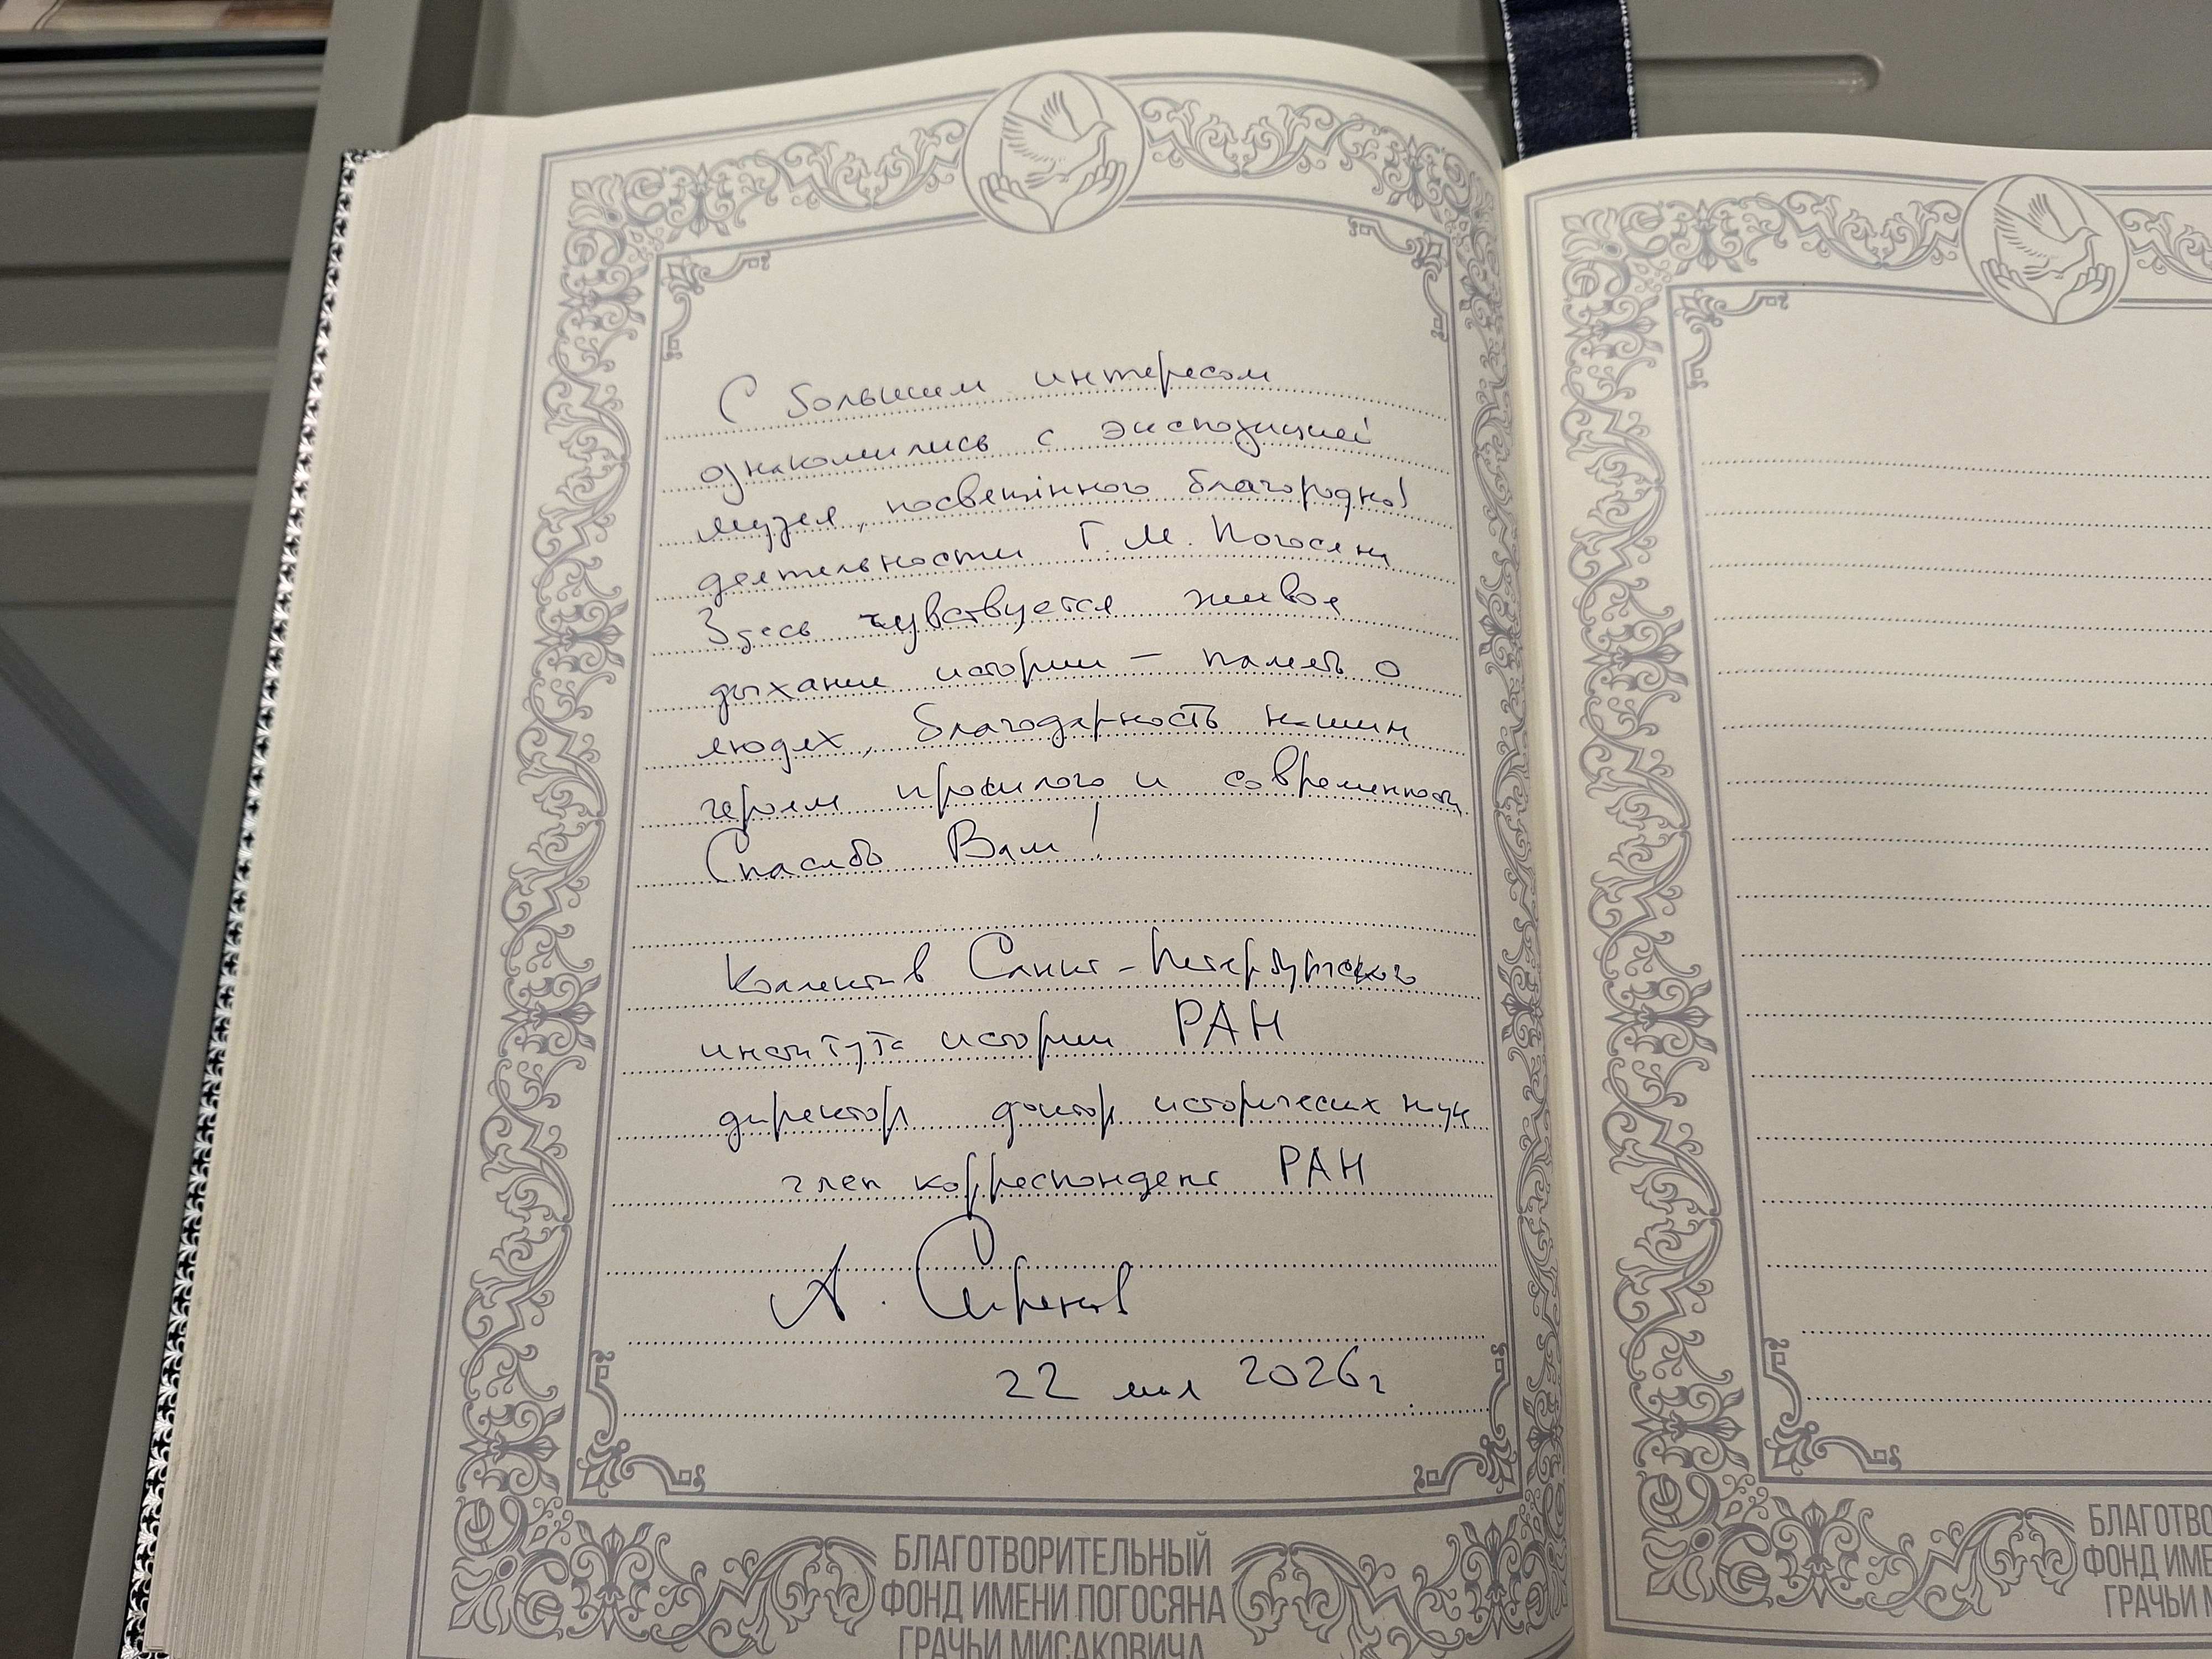 С большим интересом
ознакомились с экспозицией
музея, посвещённого благородной
деятельности Г.М. Погосяна
Здесь чувствуется живое
дыхание истории – память о
людях, благодарность нашим
героям прошлого и современности
Спасибо Вам!
Коллектив Санкт-Петербургского
института истории РАН
директор доктор исторических наук
член корреспондент РАН
А. Сиренов
22 мая 2026 г
БЛАГОТВОРИТЕЛЬНЫЙ
ФОНД ИМЕНИ ПОГОСЯНА
ГРАЧЬИ МИСАКОВИЧА
БЛАГОТВО
ФОНД ИМЕ
ГРАЧЬИ М